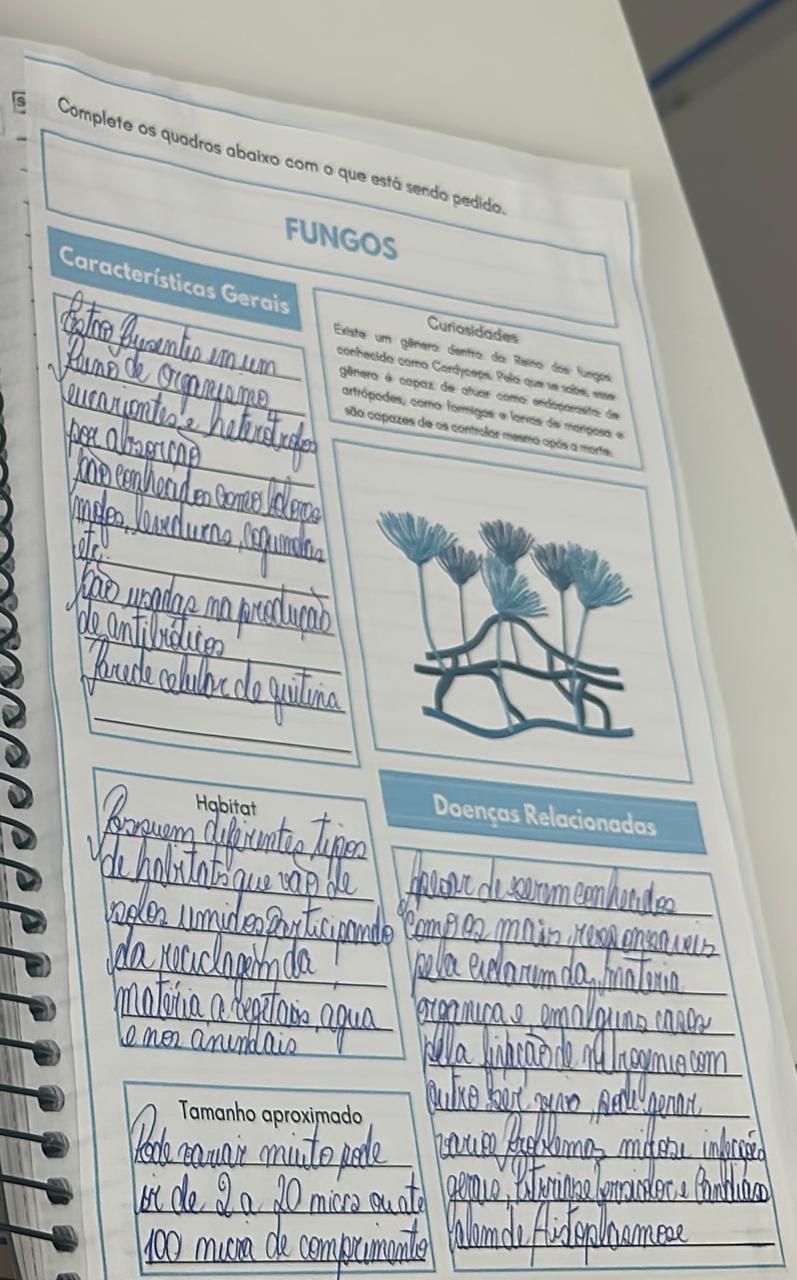 Complete os quadros abaixo com o que está sendo pedido.
FUNGOS
Características Gerais
Estão Presentes em um
Reino de Organismo
eucariontes e heterótrofos
por absorção
São conhecidos como
mofos, leveduras, cogumelos
etc.
São usadas na produção
de antibióticos
Parede celular de quitina
Curiosidades
Existe um gênero dentro do Reino dos fungos
conhecido como Cordyceps. Pelo que se sabe, esse
gênero é capaz de atuar como endoparasita de
artrópodes, como formigas e larvas de mariposa e
são capazes de os controlar mesmo após a morte.
Habitat
Possuem diferentes tipos
de habitats que vão de
solos umidos participando
da reciclagem da
matéria a vegetais, agua
e nos animais
Tamanho aproximado
Pode variar muito pode
ir de 2 a 20 micra ou até
100 micra de comprimento
Doenças Relacionadas
Apesar de serem conhecidos
como os mais responsaveis
pela da materia
organica e em alguns casos
pela de com
outro ser vivo, pode gerar
varios Problemas micose infecção
gerais, e Candidiase
alem de Histoplasmose